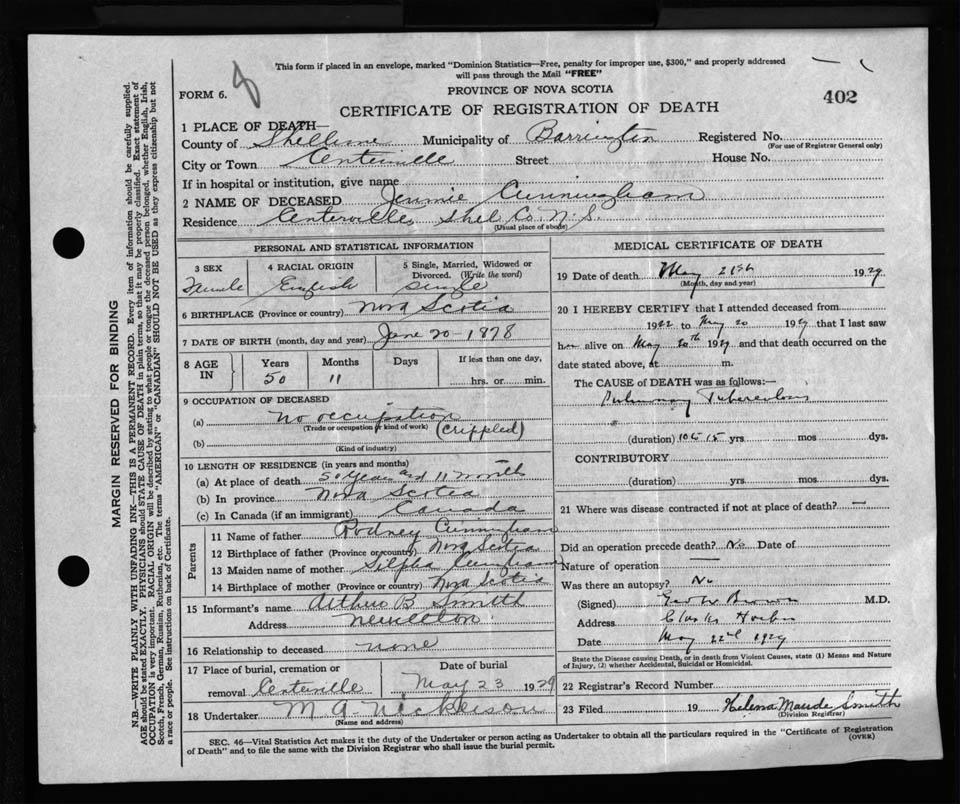 This form if placed in an envelope, marked "Dominion Statistics—Free, penalty for improper use, $300," and properly addressed
will pass through the Mail "FREE"
FORM 6.
PROVINCE OF NOVA SCOTIA
402
CERTIFICATE OF REGISTRATION OF DEATH
1 PLACE OF DEATH—
County of Shelburne Municipality of Barrington Registered No.
(For use of Registrar General only)
City or Town Centerville Street House No.
If in hospital or institution, give name
2 NAME OF DECEASED Jennie Cunningham
Residence Centerville, Shel. Co. N.S.
(Usual place of abode)
PERSONAL AND STATISTICAL INFORMATION
3 SEX 4 RACIAL ORIGIN 5 Single, Married, Widowed or
Divorced. (Write the word)
Female English single
6 BIRTHPLACE (Province or country) Nova Scotia
7 DATE OF BIRTH (month, day and year) June 20 - 1878
8 AGE IN Years Months Days If less than one day,
50 11 hrs. or min.
9 OCCUPATION OF DECEASED
(a) No occupation (crippled)
(Trade or occupation or kind of work)
(b)
(Kind of industry)
10 LENGTH OF RESIDENCE (in years and months)
(a) At place of death 50 years and 11 month
(b) In province Nova Scotia
(c) In Canada (if an immigrant) Canada
Parents
11 Name of father Rodney Cunningham
12 Birthplace of father (Province or country) Nova Scotia
13 Maiden name of mother Cunningham
14 Birthplace of mother (Province or country) Nova Scotia
15 Informant's name Arthur B Smith
Address Newellton
16 Relationship to deceased none
17 Place of burial, cremation or Date of burial
removal Centerville May 23 1929
18 Undertaker M A Nickerson
(Name and address)
MEDICAL CERTIFICATE OF DEATH
19 Date of death May 21st 1929
(Month, day and year)
20 I HEREBY CERTIFY that I attended deceased from
1922 to May 20 1929 that I last saw
her alive on May 20th 1929 and that death occurred on the
date stated above, at m.
The CAUSE of DEATH was as follows:—
Pulmonary Tuberculosis
(duration) 10 to 15 yrs. mos dys.
CONTRIBUTORY
(duration) yrs. mos. dys.
21 Where was disease contracted if not at place of death? —
Did an operation precede death? No Date of
Nature of operation —
Was there an autopsy? No
(Signed) Brown M.D.
Address Clarks Harbor
Date May 22nd 1929
State the Disease causing Death, or in death from Violent Causes, state (1) Means and Nature
of Injury, (2) whether Accidental, Suicidal or Homicidal.
22 Registrar's Record Number
23 Filed 19 Helena Maude Smith
(Division Registrar)
SEC. 46—Vital Statistics Act makes it the duty of the Undertaker or person acting as Undertaker to obtain all the particulars required in the "Certificate of Registration
of Death" and to file the same with the Division Registrar who shall issue the burial permit.
(OVER)
MARGIN RESERVED FOR BINDING
N.B.—WRITE PLAINLY WITH UNFADING INK—THIS IS A PERMANENT RECORD. Every item of information should be carefully supplied.
AGE should be stated EXACTLY. PHYSICIANS should STATE CAUSE OF DEATH in plain terms, so that it may be properly classified. Exact statement of
OCCUPATION is very important. RACIAL ORIGIN will be described by stating to what people or tongue the deceased person belonged, whether English, Irish,
Scotch, French, German, Russian, Ruthenian, etc. The terms "AMERICAN" or "CANADIAN" SHOULD NOT BE USED as they express citizenship but not
a race or people. See instructions on back of Certificate.